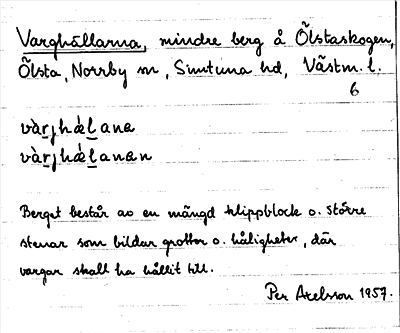 Varghällarna, mindre berg å Ölstaskogen,
Ölsta, Norrby sn, Simtuna hd, Västm. l.
6
vàrjhä́lana
vàrjhä́lanan
Berget består av en mängd klippblock o. större
stenar som bildar grottor o. håligheter, där
vargar skall ha hållit till.
Per Axelsson 1957.